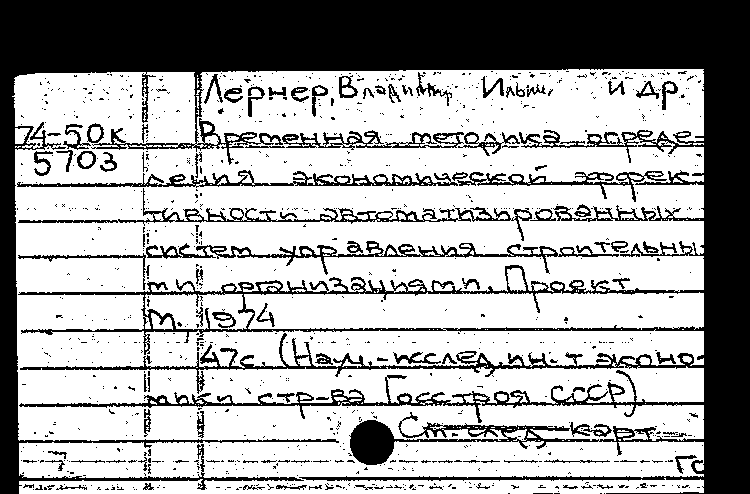 Лернер, Владимир Ильич. и др.
74-50к Временная методика опреде-
5703
ления экономической эффек-
тивности автоматизированных
систем управления строительны
ми организациями. Проект.
М., 1974
47с. (Науч.-исслед. ин-т эконо-
мики стр-ва Госстроя СССР).
См. след карт
7 Го